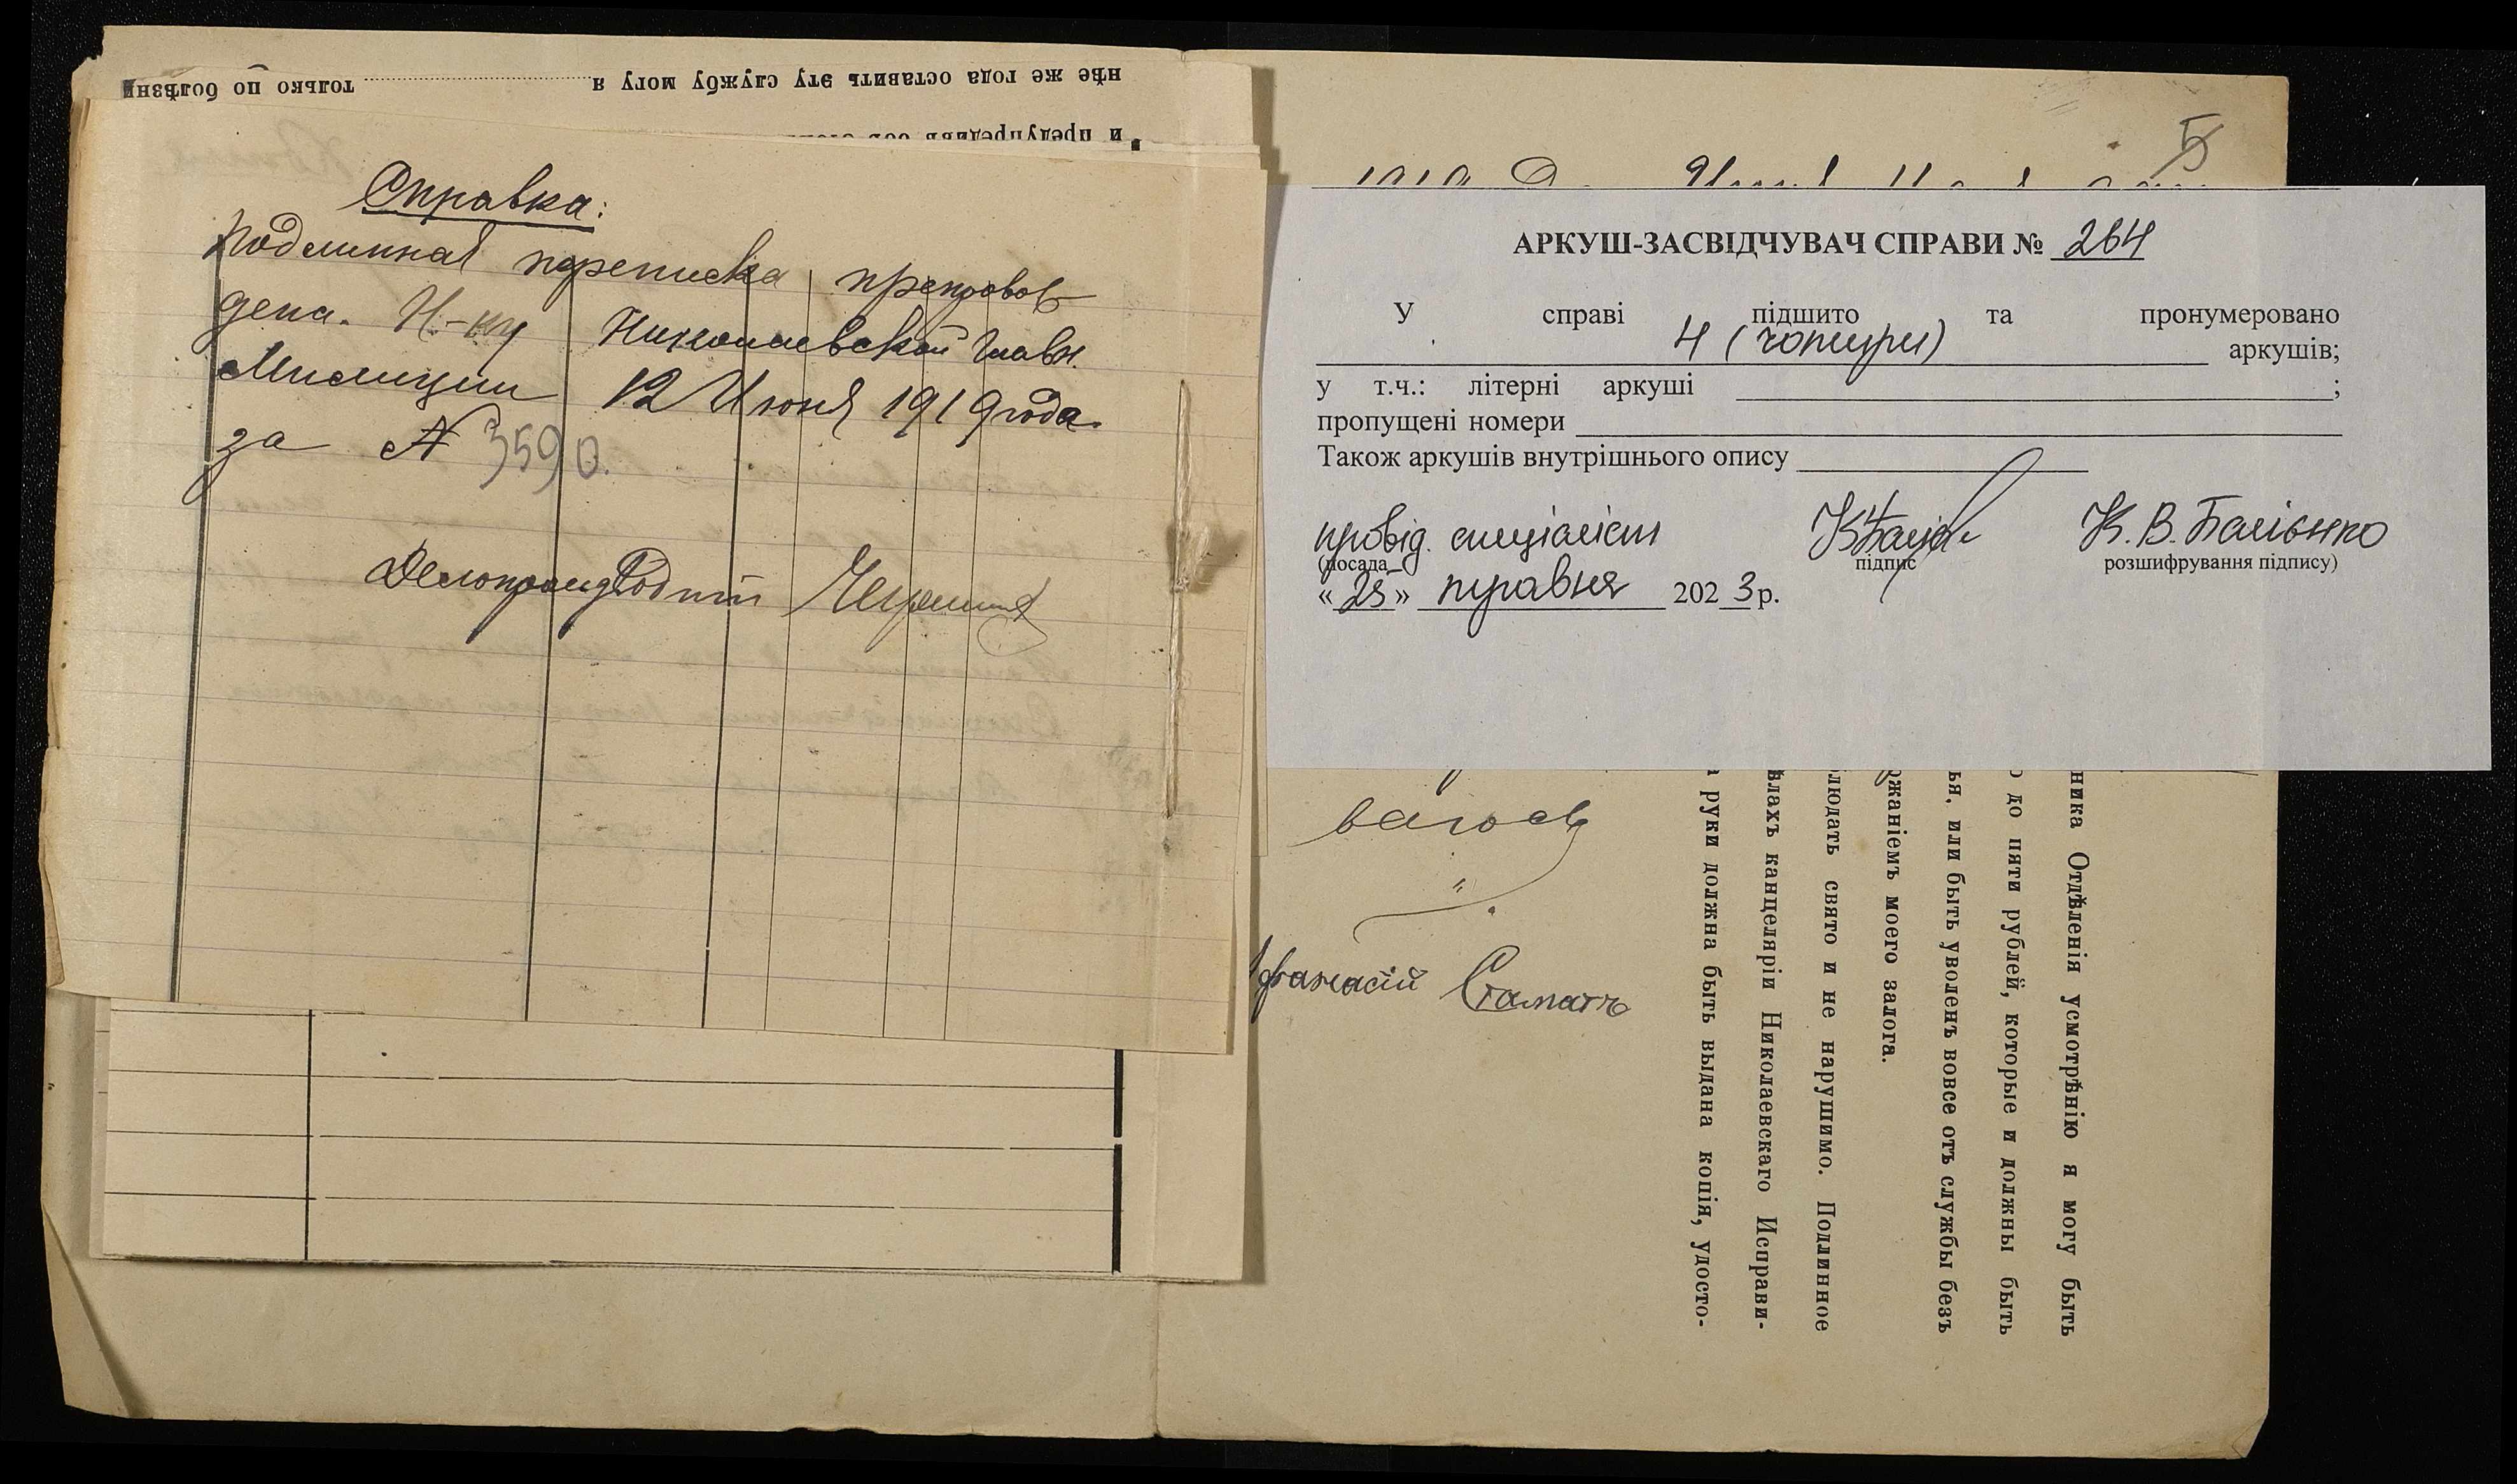 нѣе же года оставить эту службу могу я только по болѣзни
и предупредивъ
Справка:
Подлинная переписка препровож
дена. Н-ку Николаевской главн.
Милиции 12 Июня 1919 года.
за № 3590.
5
АРКУШ-ЗАСВІДЧУВАЧ СПРАВИ № 264
У справі підшито та пронумеровано
4 (чотири) аркушів;
у т.ч.: літерні аркуші ;
пропущені номери
Також аркушів внутрішнього опису
провід. спеціаліст К. В. Балієнко
(посада підпис розшифрування підпису)
«25» травня 2023 р.
Афанасій Стаматъ
ника Отдѣленія усмотрѣнію я могу быть
о до пяти рублей, которые и должны быть
ья, или быть уволенъ вовсе отъ службы безъ
ржаніемъ моего залога.
людать свято и не нарушимо. Подлинное
ѣлахъ канцеляріи Николаевскаго Исправи-
руки должна быть выдана копія, удосто-